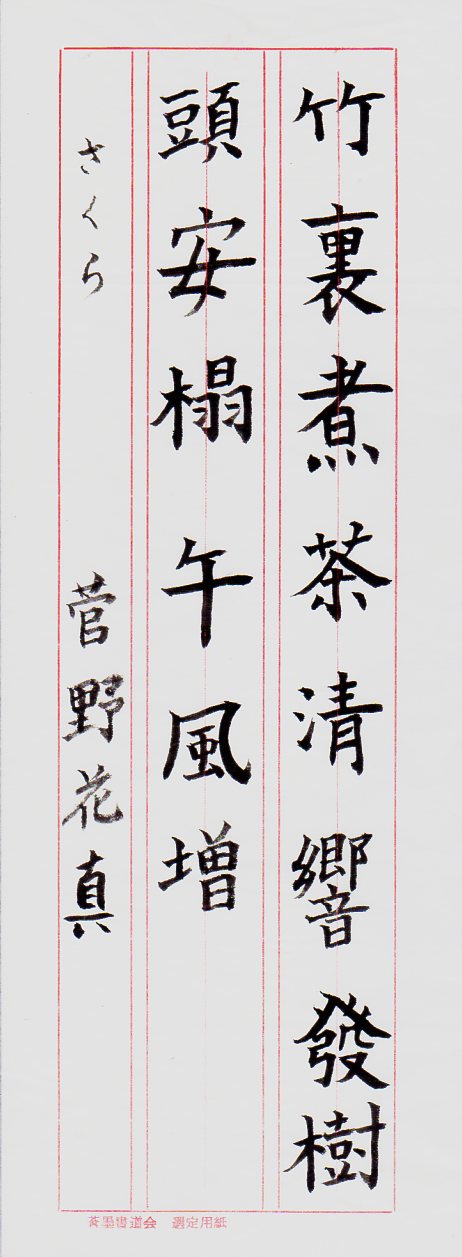 竹裏煮茶清響發樹
頭安榻午風増
さくら 菅野花真
蒼墨書道会 選定用紙